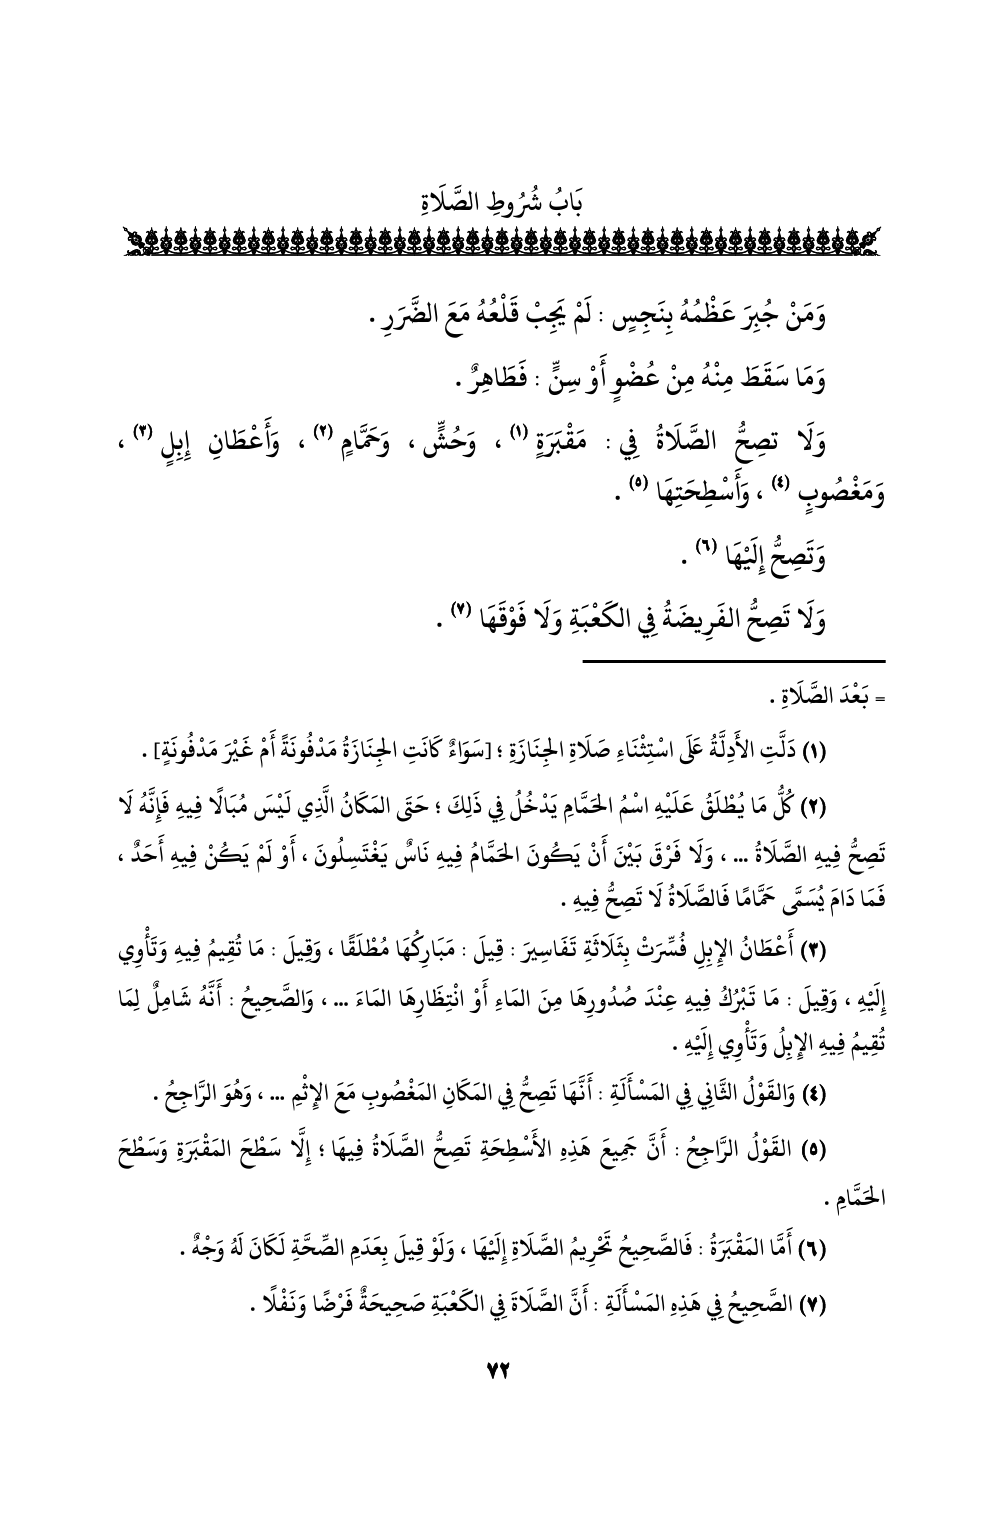 بَابُ شُرُوطِ الصَّلَاةِ
وَمَنْ جُبِرَ عَظْمُهُ بِنَجِسٍ : لَمْ يَجِبْ قَلْعُهُ مَعَ الضَّرَرِ .
وَمَا سَقَطَ مِنْهُ مِنْ عُضْوٍ أَوْ سِنٍّ : فَطَاهِرٌ .
وَلَا تصِحُّ الصَّلَاةُ فِي : مَقْبَرَةٍ (١) ، وَحُشٍّ ، وَحَمَّامٍ (٢) ، وَأَعْطَانِ إِبِلٍ (٣) ،
وَمَغْصُوبٍ (٤) ، وَأَسْطِحَتِهَا (٥) .
وَتَصِحُّ إِلَيْهَا (٦) .
وَلَا تَصِحُّ الفَرِيضَةُ فِي الكَعْبَةِ وَلَا فَوْقَهَا (٧) .
= بَعْدَ الصَّلَاةِ .
(١) دَلَّتِ الأَدِلَّةُ عَلَى اسْتِثْنَاءِ صَلَاةِ الجِنَازَةِ ؛ [سَوَاءٌ كَانَتِ الجِنَازَةُ مَدْفُونَةً أَمْ غَيْرَ مَدْفُونَةٍ] .
(٢) كُلُّ مَا يُطْلَقُ عَلَيْهِ اسْمُ الحَمَّامِ يَدْخُلُ فِي ذَلِكَ ؛ حَتَى المَكَانُ الَّذِي لَيْسَ مُبَالًا فِيهِ فَإِنَّهُ لَا
تَصِحُّ فِيهِ الصَّلَاةُ ... ، وَلَا فَرْقَ بَيْنَ أَنْ يَكُونَ الحَمَّامُ فِيهِ نَاسٌ يَغْتَسِلُونَ ، أَوْ لَمْ يَكُنْ فِيهِ أَحَدٌ ،
فَمَا دَامَ يُسَمَّى حَمَّامًا فَالصَّلَاةُ لَا تَصِحُّ فِيهِ .
(٣) أَعْطَانُ الإِبِلِ فُسِّرَتْ بِثَلَاثَةِ تَفَاسِيرَ : قِيلَ : مَبَارِكُهَا مُطْلَقًا ، وَقِيلَ : مَا تُقِيمُ فِيهِ وَتَأْوِي
إِلَيْهِ ، وَقِيلَ : مَا تَبْرُكُ فِيهِ عِنْدَ صُدُورِهَا مِنَ المَاءِ أَوْ انْتِظَارِهَا المَاءَ ... ، وَالصَّحِيحُ : أَنَّهُ شَامِلٌ لِمَا
تُقِيمُ فِيهِ الإِبِلُ وَتَأْوِي إِلَيْهِ .
(٤) وَالقَوْلُ الثَّانِي فِي المَسْأَلَةِ : أَنَّهَا تَصِحُّ فِي المَكَانِ المَغْصُوبِ مَعَ الإِثْمِ ... ، وَهُوَ الرَّاجِحُ .
(٥) القَوْلُ الرَّاجِحُ : أَنَّ جَمِيعَ هَذِهِ الأَسْطِحَةِ تَصِحُّ الصَّلَاةُ فِيهَا ؛ إِلَّا سَطْحَ المَقْبَرَةِ وَسَطْحَ
الحَمَّامِ .
(٦) أَمَّا المَقْبَرَةُ : فَالصَّحِيحُ تَحْرِيمُ الصَّلَاةِ إِلَيْهَا ، وَلَوْ قِيلَ بِعَدَمِ الصِّحَّةِ لَكَانَ لَهُ وَجْهٌ .
(٧) الصَّحِيحُ فِي هَذِهِ المَسْأَلَةِ : أَنَّ الصَّلَاةَ فِي الكَعْبَةِ صَحِيحَةٌ فَرْضًا وَنَفْلًا .
٧٢